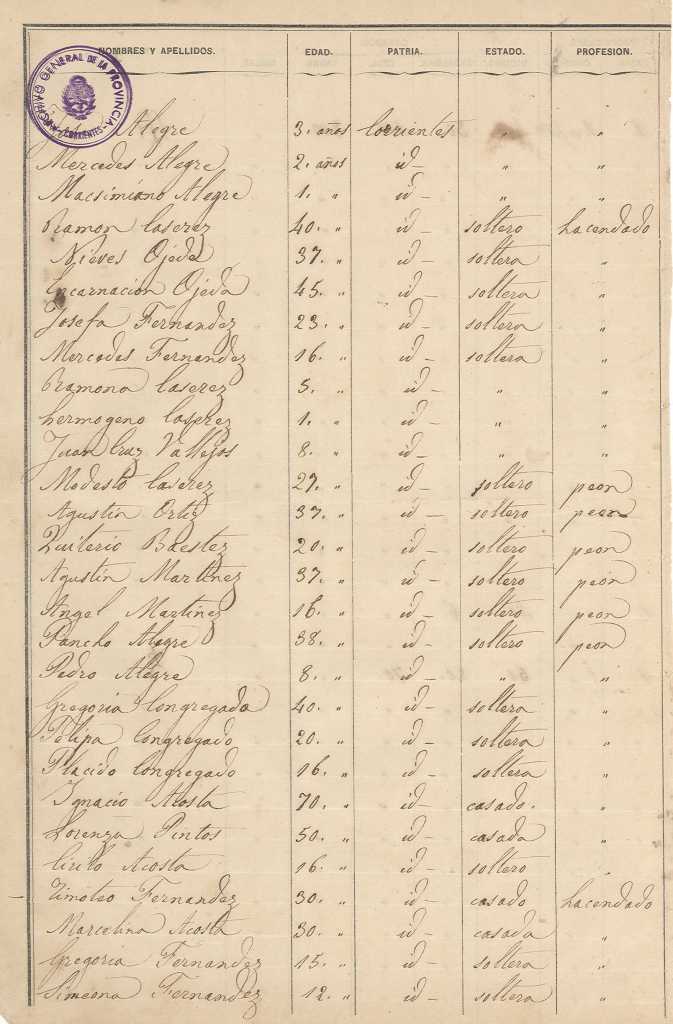 NOMBRES Y APELLIDOS. EDAD. PATRIA. ESTADO. PROFESION.
ARCHIVO GENERAL DE LA PROVINCIA
CORRIENTES
Alegre 3. años Corrientes " "
Mercedes Alegre 2. años id — " "
Macsimiano Alegre 1. " id — " "
Ramon Caserez 40. " id — soltero hacendado
Nieves Ojeda 37. " id — soltera "
Encarnacion Ojeda 45. " id — soltera "
Josefa Fernandez 23. " id — soltera "
Mercedes Fernandez 16. " id — soltera "
Ramona Caserez 5. " id — " "
hermogeno Caserez 1. " id — " "
Juan Cruz Vallejos 8. " id — " "
Modesto Caserez 27. " id — soltero peon
Agustin Ortiz 37. " id — soltero peon
Quiterio Baestez 20. " id — soltero peon
Agustin Martinez 37. " id — soltero peon
Angel Martinez 16. " id — soltero peon
Pancho Alegre 38. " id — soltero peon
Pedro Alegre 8. " id — " "
Gregoria Congregada 40. " id — soltera "
Felipa Congregado 20. " id — soltera "
Placido Congregado 16. " id — soltera "
Ignacio Acosta 70. " id — casado. "
Lorenza Pintos 50. " id — casada "
Cirilo Acosta 16. " id — soltero "
Timoteo Fernandez 30. " id — casado hacendado
Marcelina Acosta 30. " id — casada "
Gregoria Fernandez 15. " id — soltera "
Simeona Fernandez 12. " id — soltera "